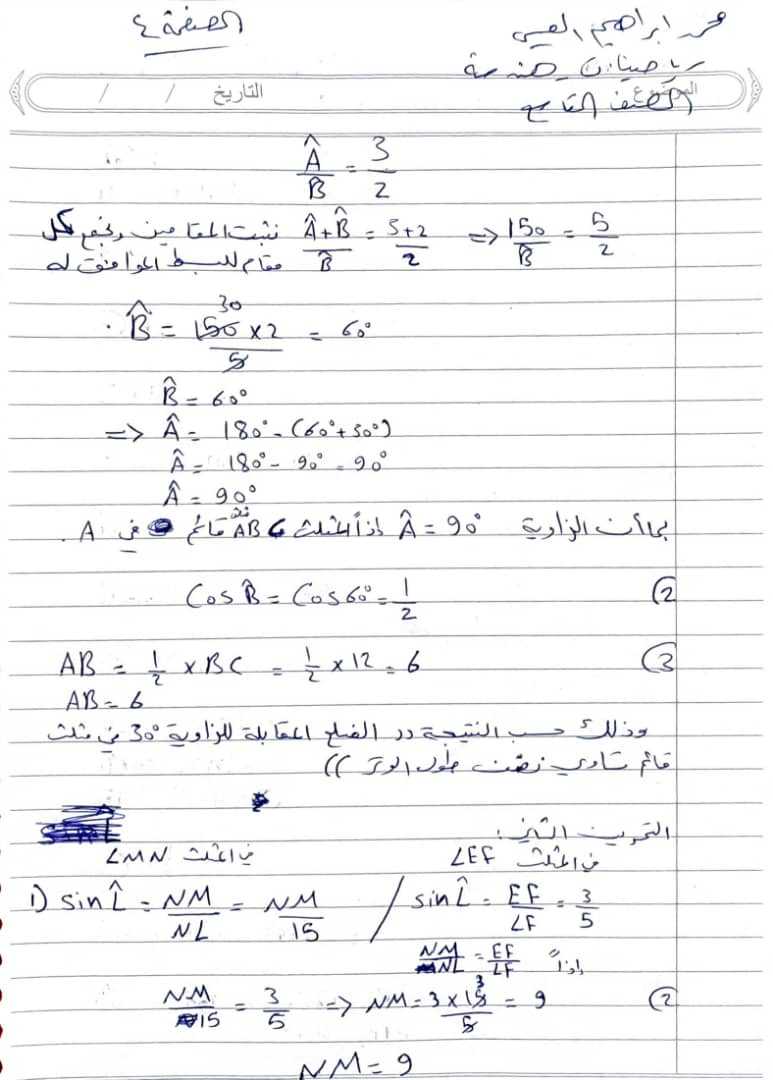 الصفحة ٤
ابراهيم العيسى
رياضيات - هندسة
الموضوع
الصف التاسع
التاريخ / /
Â/B = 3/2
Â+B̂/B̂ = 3+2/2 => 150/B̂ = 5/2 نثبت المقامين ونجمع كل
مقام للبسط الموافق له
30
B̂ = 150 × 2/5 = 60°
B̂ = 60°
=> Â = 180° - (60° + 30°)
Â = 180° - 90° = 90°
Â = 90°
بما أن الزاوية Â = 90° إذاً المثلث AB قائم في A .
2) Cos B̂ = Cos 60° = 1/2
3) AB = 1/2 × BC = 1/2 × 12 = 6
AB = 6
وذلك حسب النتيجة (( الضلع المقابلة للزاوية 30° في مثلث
قائم تساوي نصف طول الوتر ))
التمرين الثاني:
في المثلث LEF في المثلث LMN
1) sin L̂ = NM/NL = NM/15 / sin L̂ = EF/LF = 3/5
إذاً NM/NL = EF/LF
2) NM/15 = 3/5 => NM = 3 × 15/5 = 9
3
NM = 9